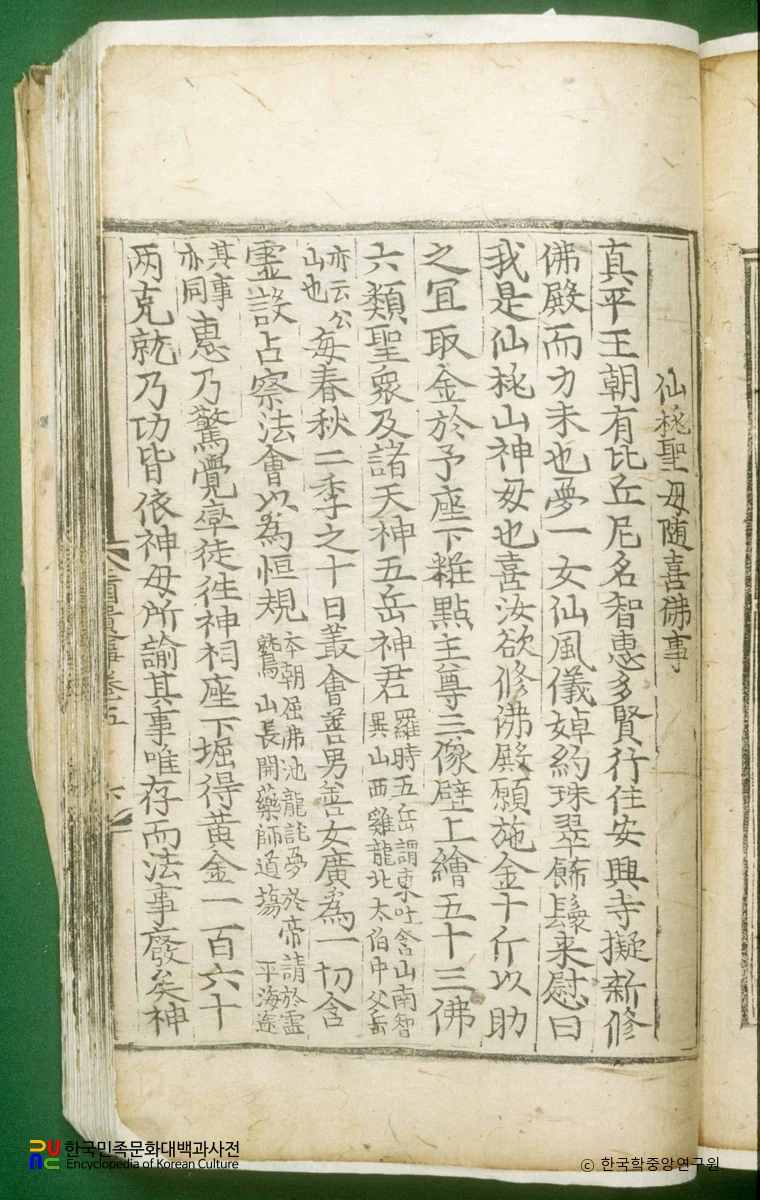 仙桃聖母随喜佛事
真平王朝有比丘尼名智惠多賢行住安興寺擬新修
佛殿而力未也夢一女仙風儀婥約珠翠飾鬟来慰曰
我是仙桃山神母也喜汝欲修佛殿願施金十斤以助
之冝取金於予座下粧點主尊三像壁上繪五十三佛
六類聖衆及諸天神五岳神君羅時五岳謂東吐含山南智
異山西雞龍北太伯中父岳
亦云公
山也毎春秋二季之十日叢會善男善女廣為一切含
霊設占察法會以為恒規本朝屈佛池龍託夢於帝請於霊
鷲山長開藥師道塲平海途
其事
亦同惠乃驚覺率徒徃神祠座下堀得黄金一百六十
两克就乃功皆依神母所諭其事唯存而法事廢矣神
遺事卷五
한국민족문화대백과사전
Encyclopedia of Korean Culture
© 한국학중앙연구원